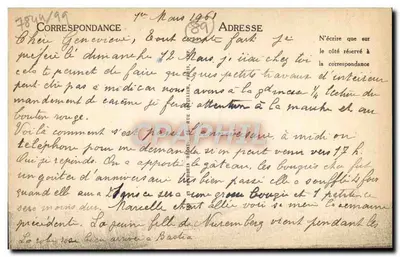 7844/99
1er Mars 1961
(89)
CORRESPONDANCE
ADRESSE
N'écrire que sur
le côté réservé à
la correspondance
Chère Geneviève, Tout compte fait je
préfère le dimanche 12 Mars, j'irai chez toi
cela te permet de faire quelques petits travaux d'intérieur
peut être pas à midi car nous avons à la lecture du
mandement de carême je ferai attention à la marche et au
bouton rouge.
Voilà comment s'est passé l'anniversaire à midi on
téléphone pour me demander si on peut venir vers 17 h.
Oui je réponds. On a apporté le gâteau, les bougies enfin fut
un goûter d'anniversaire très bien passé elle a soufflé 4 fois
quand elle aura 20 ans ce sera une grosse bougie et
sera moins dur. Marcelle était allée voir sa mère la semaine
précédente. La jeune fille de Nuremberg vient pendant les
La robe rose bien arrivée à Bastia